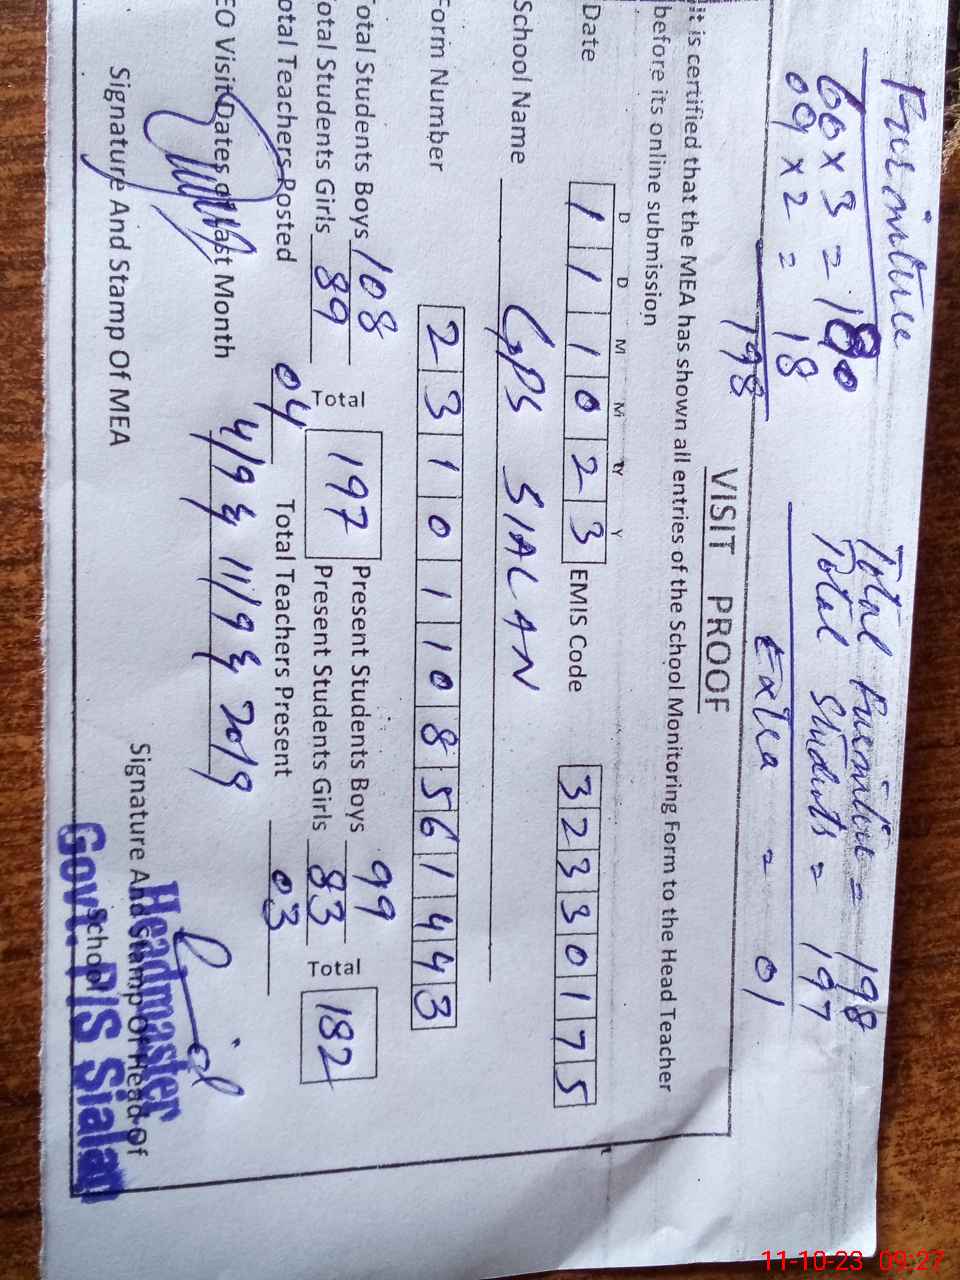 Furniture
60 x 3 = 180
09 x 2 = 18
198
Total Furniture = 198
Total Students = 197
Extra = 01
VISIT PROOF
it is certified that the MEA has shown all entries of the School Monitoring Form to the Head Teacher
before its online submission
D D M M Y Y
Date 1 1 1 0 2 3 EMIS Code 3 2 3 3 0 1 7 5
School Name GPS SIALAN
Form Number 2 3 1 0 1 1 0 8 5 6 1 4 4 3
otal Students Boys 108 Total 197 Present Students Boys 99 Total 182
otal Students Girls 89 Present Students Girls 83
otal Teachers Posted 04 Total Teachers Present 03
EO Visit Dates of Last Month 4/9 & 11/9 & 20/9
Signature And Stamp Of MEA
Signature And Stamp Of Head of
School
Headmaster
Govt. P/S Sialan
11-10-23 09:27